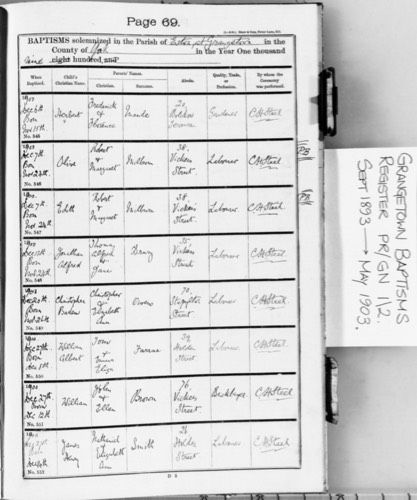 Page 69.
BAPTISMS solemnized in the Parish of Eston pt Grangetown in the
County of York in the Year One thousand
nine eight hundred and
When Baptized. Child's Christian Name. Parents' Names. Christian. Surname. Abode. Quality, Trade, or Profession. By whom the Ceremony was performed.
1900 Dec 6th Born Nov 18th No. 545 Herbert Frederick & Florence 20, Bolckow Terrace Gardener C H Steel
1900 Dec 7th Born Nov 24th No. 546 Olive Robert & Margaret Milburn 38, Vickers Street. Labourer C H Steel
1900 Dec 7th Born Nov 24th No. 547 Edith Robert & Margaret Milburn 38, Vickers Street. Labourer C H Steel
1900 Born No. 548 Jonathan Alfred Thomas Alfred & Jane Vickers Street. Labourer C H Steel
1900 Born No. 549 Christopher Christopher & Elizabeth Ann Owens Street. Labourer C H Steel
1900 Dec 27th Born Dec 1st No. 550 William Albert Tom & Eliza Holden Street Labourer C H Steel
1900 Dec 27th Born Dec 12th No. 551 William John & Ellen Brown 76, Vickers Street. C H Steel
1900 Born No. 552 James Henry Nathaniel & Elizabeth Ann Smith 26 Holden Street Labourer C H Steel
D 3
GRANGETOWN BAPTISMS
REGISTER PR/GN 1/2
SEPT 1893 → MAY 1903.